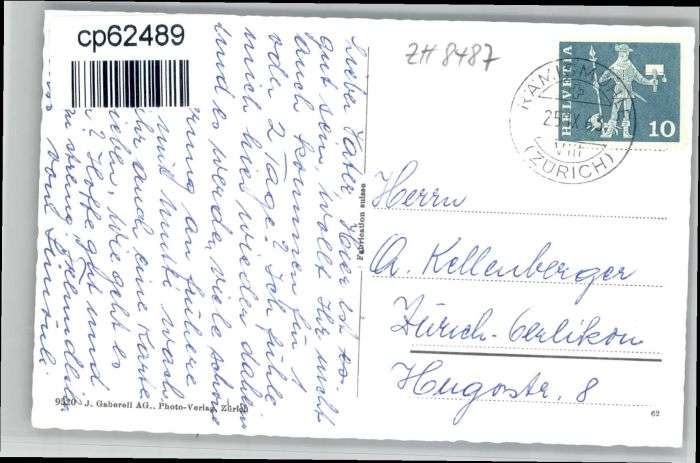 cp62489
ZH 8487
HELVETIA
10
RÄMISMÜHLE
25.IX.6
(ZÜRICH)
Lieber Vater, Hier ist es
gut sein, wollt Ihr nicht
auch kommen für 1
oder 2 Tage? Ich fühle
mich hier wieder daheim
und es werden viele schöne
rung an frühere
und Mutti wach
Ihr auch eine Karte
geben. Wie geht es
? Hoffe gut und
zu streng. Grüsse
von
Herrn
A. Kellenberger
Zürich-Oerlikon
Hugostr. 8
Fabrication suisse
9520 - J. Gaberell AG., Photo-Verlag, Zürich
62